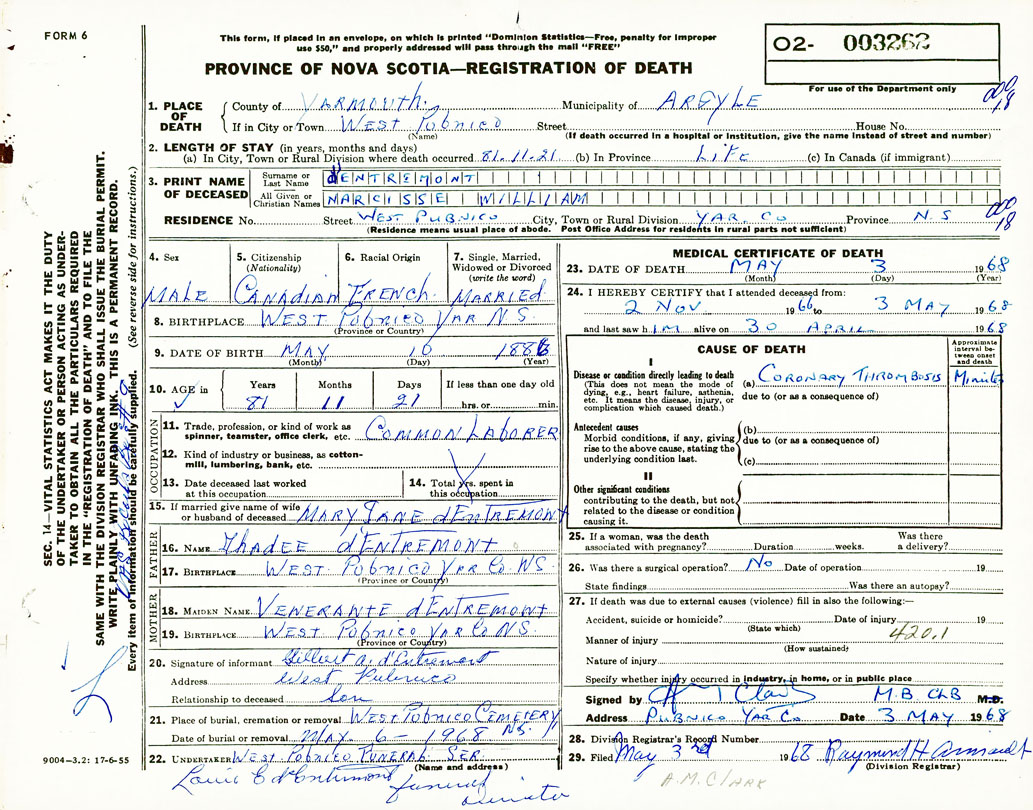 FORM 6
This form, if placed in an envelope, on which is printed "Dominion Statistics—Free, penalty for improper
use $50," and properly addressed will pass through the mail "FREE"
PROVINCE OF NOVA SCOTIA—REGISTRATION OF DEATH
02- 003262
For use of the Department only
1. PLACE OF DEATH
County of Yarmouth. Municipality of ARGYLE
If in City or Town West Pubnico Street House No.
(Name) (If death occurred in a hospital or institution, give the name instead of street and number)
2. LENGTH OF STAY (in years, months and days)
(a) In City, Town or Rural Division where death occurred 81-11-21 (b) In Province LIFE (c) In Canada (if immigrant)
3. PRINT NAME OF DECEASED
Surname or Last Name dENTREMONT
All Given or Christian Names NARCISSE WILLIAM
RESIDENCE No. Street WEST PUBNICO City, Town or Rural Division YAR. CO Province N.S
(Residence means usual place of abode. Post Office Address for residents in rural parts not sufficient)
18
18
SEC. 14—VITAL STATISTICS ACT MAKES IT THE DUTY
OF THE UNDERTAKER OR PERSON ACTING AS UNDER-
TAKER TO OBTAIN ALL THE PARTICULARS REQUIRED
IN THE "REGISTRATION OF DEATH" AND TO FILE THE
SAME WITH THE DIVISION REGISTRAR WHO SHALL ISSUE THE BURIAL PERMIT.
WRITE PLAINLY WITH UNFADING INK. THIS IS A PERMANENT RECORD.
Every item of information should be carefully supplied. (See reverse side for instructions.)
4. Sex
MALE
5. Citizenship
(Nationality)
Canadian
6. Racial Origin
French
7. Single, Married,
Widowed or Divorced
(write the word)
MARRIED
8. BIRTHPLACE West Pobnico Yar N.S.
(Province or Country)
9. DATE OF BIRTH May 10 1886
(Month) (Day) (Year)
10. AGE in
Years Months Days If less than one day old
81 11 21 hrs. or min.
OCCUPATION
11. Trade, profession, or kind of work as
spinner, teamster, office clerk, etc. COMMON LABORER
12. Kind of industry or business, as cotton-
mill, lumbering, bank, etc.
13. Date deceased last worked
at this occupation
14. Total yrs. spent in
this occupation
15. If married give name of wife
or husband of deceased MARY JANE dENTREMONT
FATHER
16. NAME Thadee dENTREMONT
17. BIRTHPLACE WEST. Pobnico Yar Co. NS.
(Province or Country)
MOTHER
18. MAIDEN NAME VENERANTE dENTREMONT
19. BIRTHPLACE West Pobnico Yar Co N.S.
(Province or Country)
20. Signature of informant Gilbert A. d'Entremont
Address West Pubnico
Relationship to deceased Son
21. Place of burial, cremation or removal WEST POBNICO CEMETERY
NS.
Date of burial or removal MAY. 6- 1968
22. UNDERTAKER West Pobnico Funeral Ser
(Name and address)
Louis E d'Entremont funeral
9004-3.2: 17-6-55
MEDICAL CERTIFICATE OF DEATH
23. DATE OF DEATH MAY 3 1968
(Month) (Day) (Year)
24. I HEREBY CERTIFY that I attended deceased from:
2 Nov 1966 to 3 MAY 1968
and last saw him alive on 30 APRIL 1968
CAUSE OF DEATH
Approximate
interval be-
tween onset
and death
I
Disease or condition directly leading to death
(This does not mean the mode of
dying, e.g., heart failure, asthenia,
etc. It means the disease, injury, or
complication which caused death.)
(a) CORONARY THROMBOSIS Minutes
due to (or as a consequence of)
Antecedent causes
Morbid conditions, if any, giving
rise to the above cause, stating the
underlying condition last.
(b)
due to (or as a consequence of)
(c)
II
Other significant conditions
contributing to the death, but not
related to the disease or condition
causing it.
25. If a woman, was the death
associated with pregnancy? Duration weeks. Was there
a delivery?
26. Was there a surgical operation? No Date of operation 19
State findings Was there an autopsy?
27. If death was due to external causes (violence) fill in also the following:—
Accident, suicide or homicide? Date of injury 19
(State which)
420.1
Manner of injury
(How sustained)
Nature of injury
Specify whether injury occurred in industry, in home, or in public place
Signed by A M Clark M.B. CHB M.D.
Address PUBNICO YAR Co. Date 3 MAY 1968
28. Division Registrar's Record Number
29. Filed May 3rd 1968 Raymond H Amirault
(Division Registrar)
A.M. CLARK